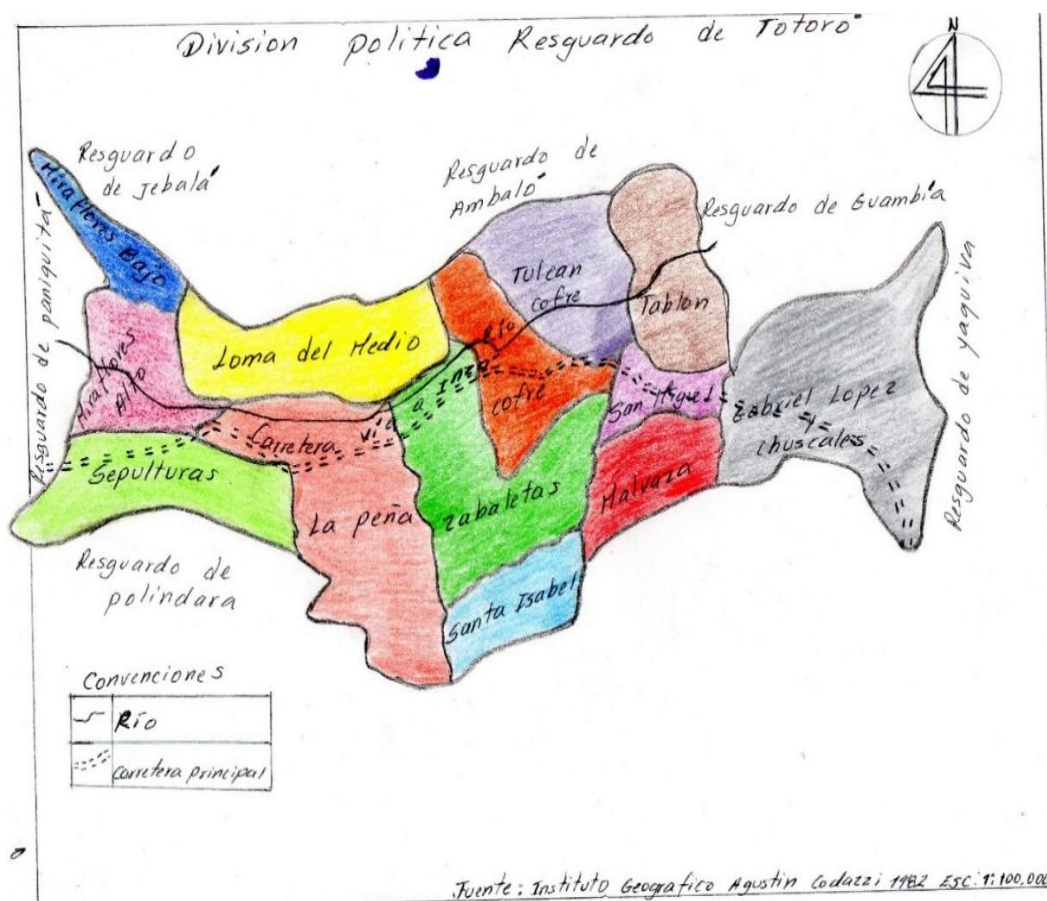 Division politica Resguardo de Totoró
N
Resguardo
de jebalá
Resguardo de
Ambaló
Resguardo de Guambía
Resguardo de paniquitá
Resguardo de yaquiva
Miraflores Bajo
Miraflores
Alto
Loma del Medio
Tulcan
cofre
Tablon
Río
cofre
San Miguel
Gabriel Lopez
y
chuscales
Carretera Vía a INZA
Sepulturas
La peña
Zabaletas
Malvaza
Santa Isabel
Resguardo de
polindara
Convenciones
Río
Carretera principal
Fuente: Instituto Geografico Agustin Codazzi 1982 ESC: 1:100,000